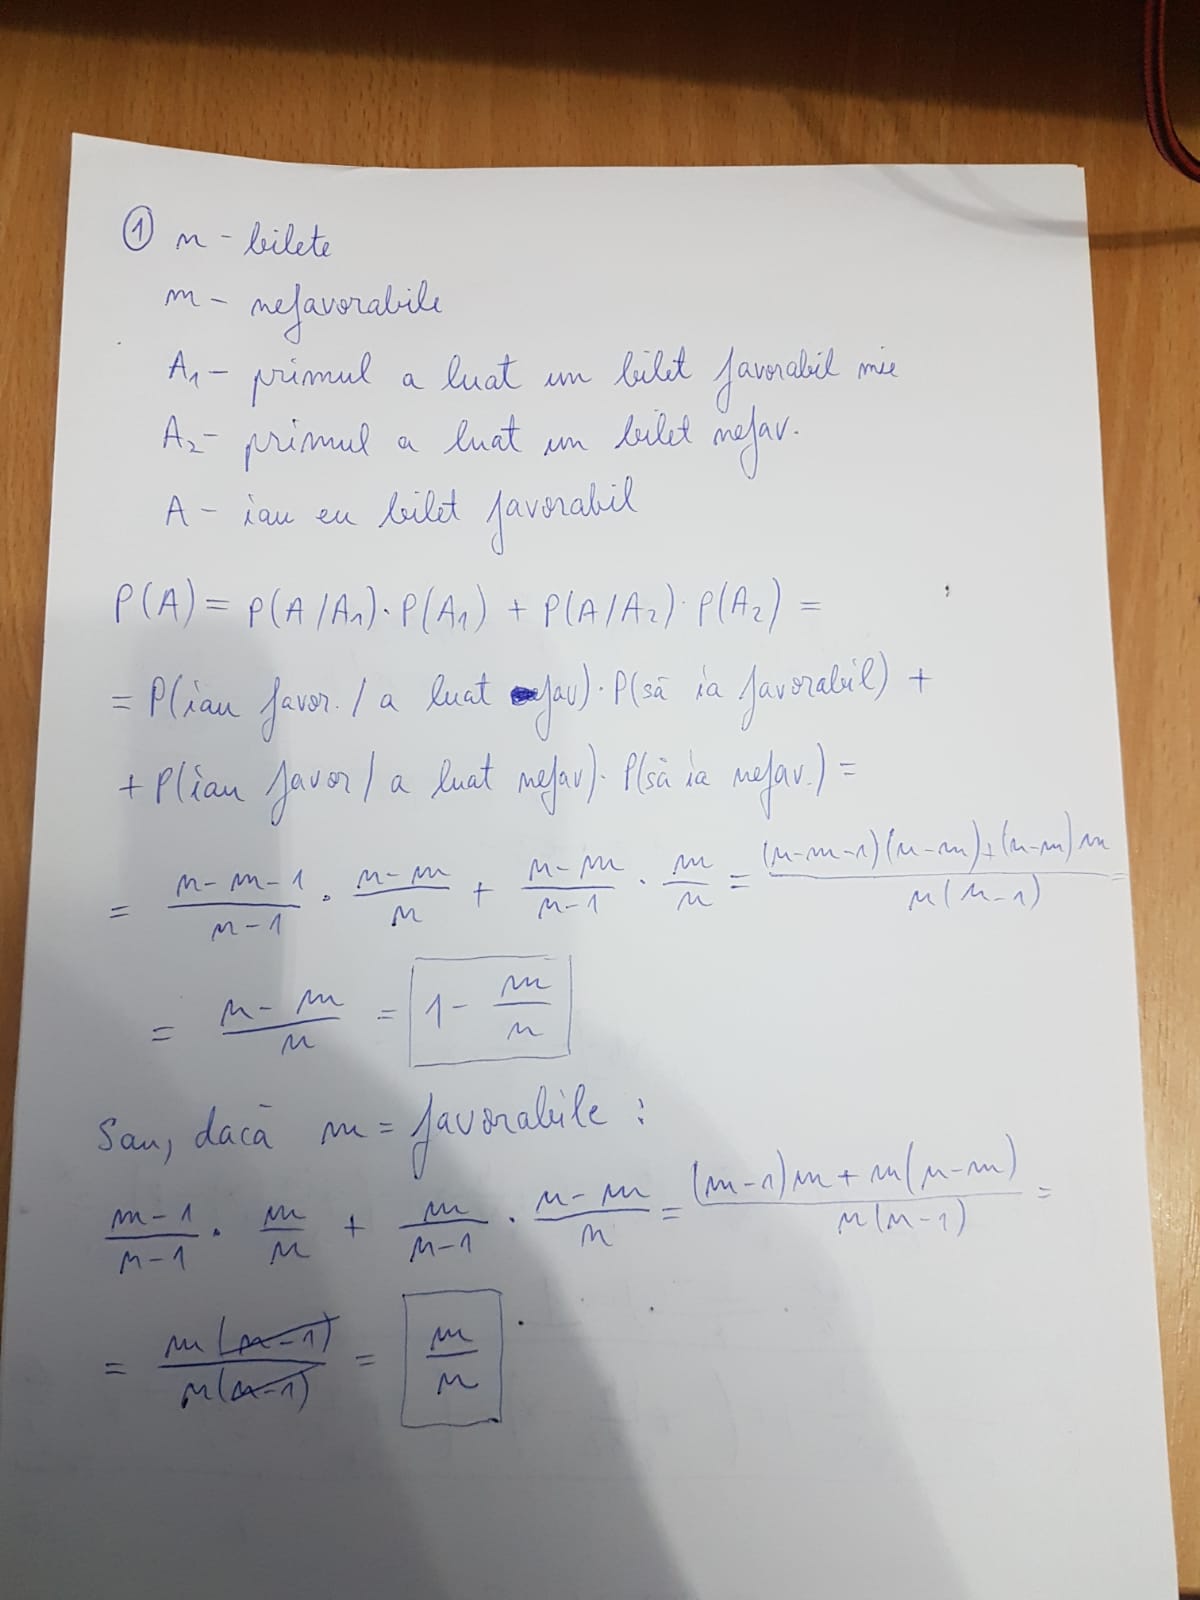 ① n - bilete
m - nefavorabile
A1 - primul a luat un bilet favorabil mie
A2 - primul a luat un bilet nefav.
A - iau eu bilet favorabil
P(A) = P(A/A1)·P(A1) + P(A/A2)·P(A2) =
= P(iau favor. / a luat fav)·P(să ia favorabil) +
+ P(iau favor / a luat nefav)·P(să ia nefav.) =
= (n-m-1)/(n-1) · (n-m)/n + (n-m)/(n-1) · m/n = ((n-m-1)(n-m)+(n-m)m)/(n(n-1)) =
= (n-m)/n = 1 - m/n
Sau, dacă m = favorabile :
(m-1)/(n-1) · m/n + m/(n-1) · (n-m)/n = ((m-1)m + m(n-m))/(n(n-1)) =
= m(n-1)/n(n-1) = m/n